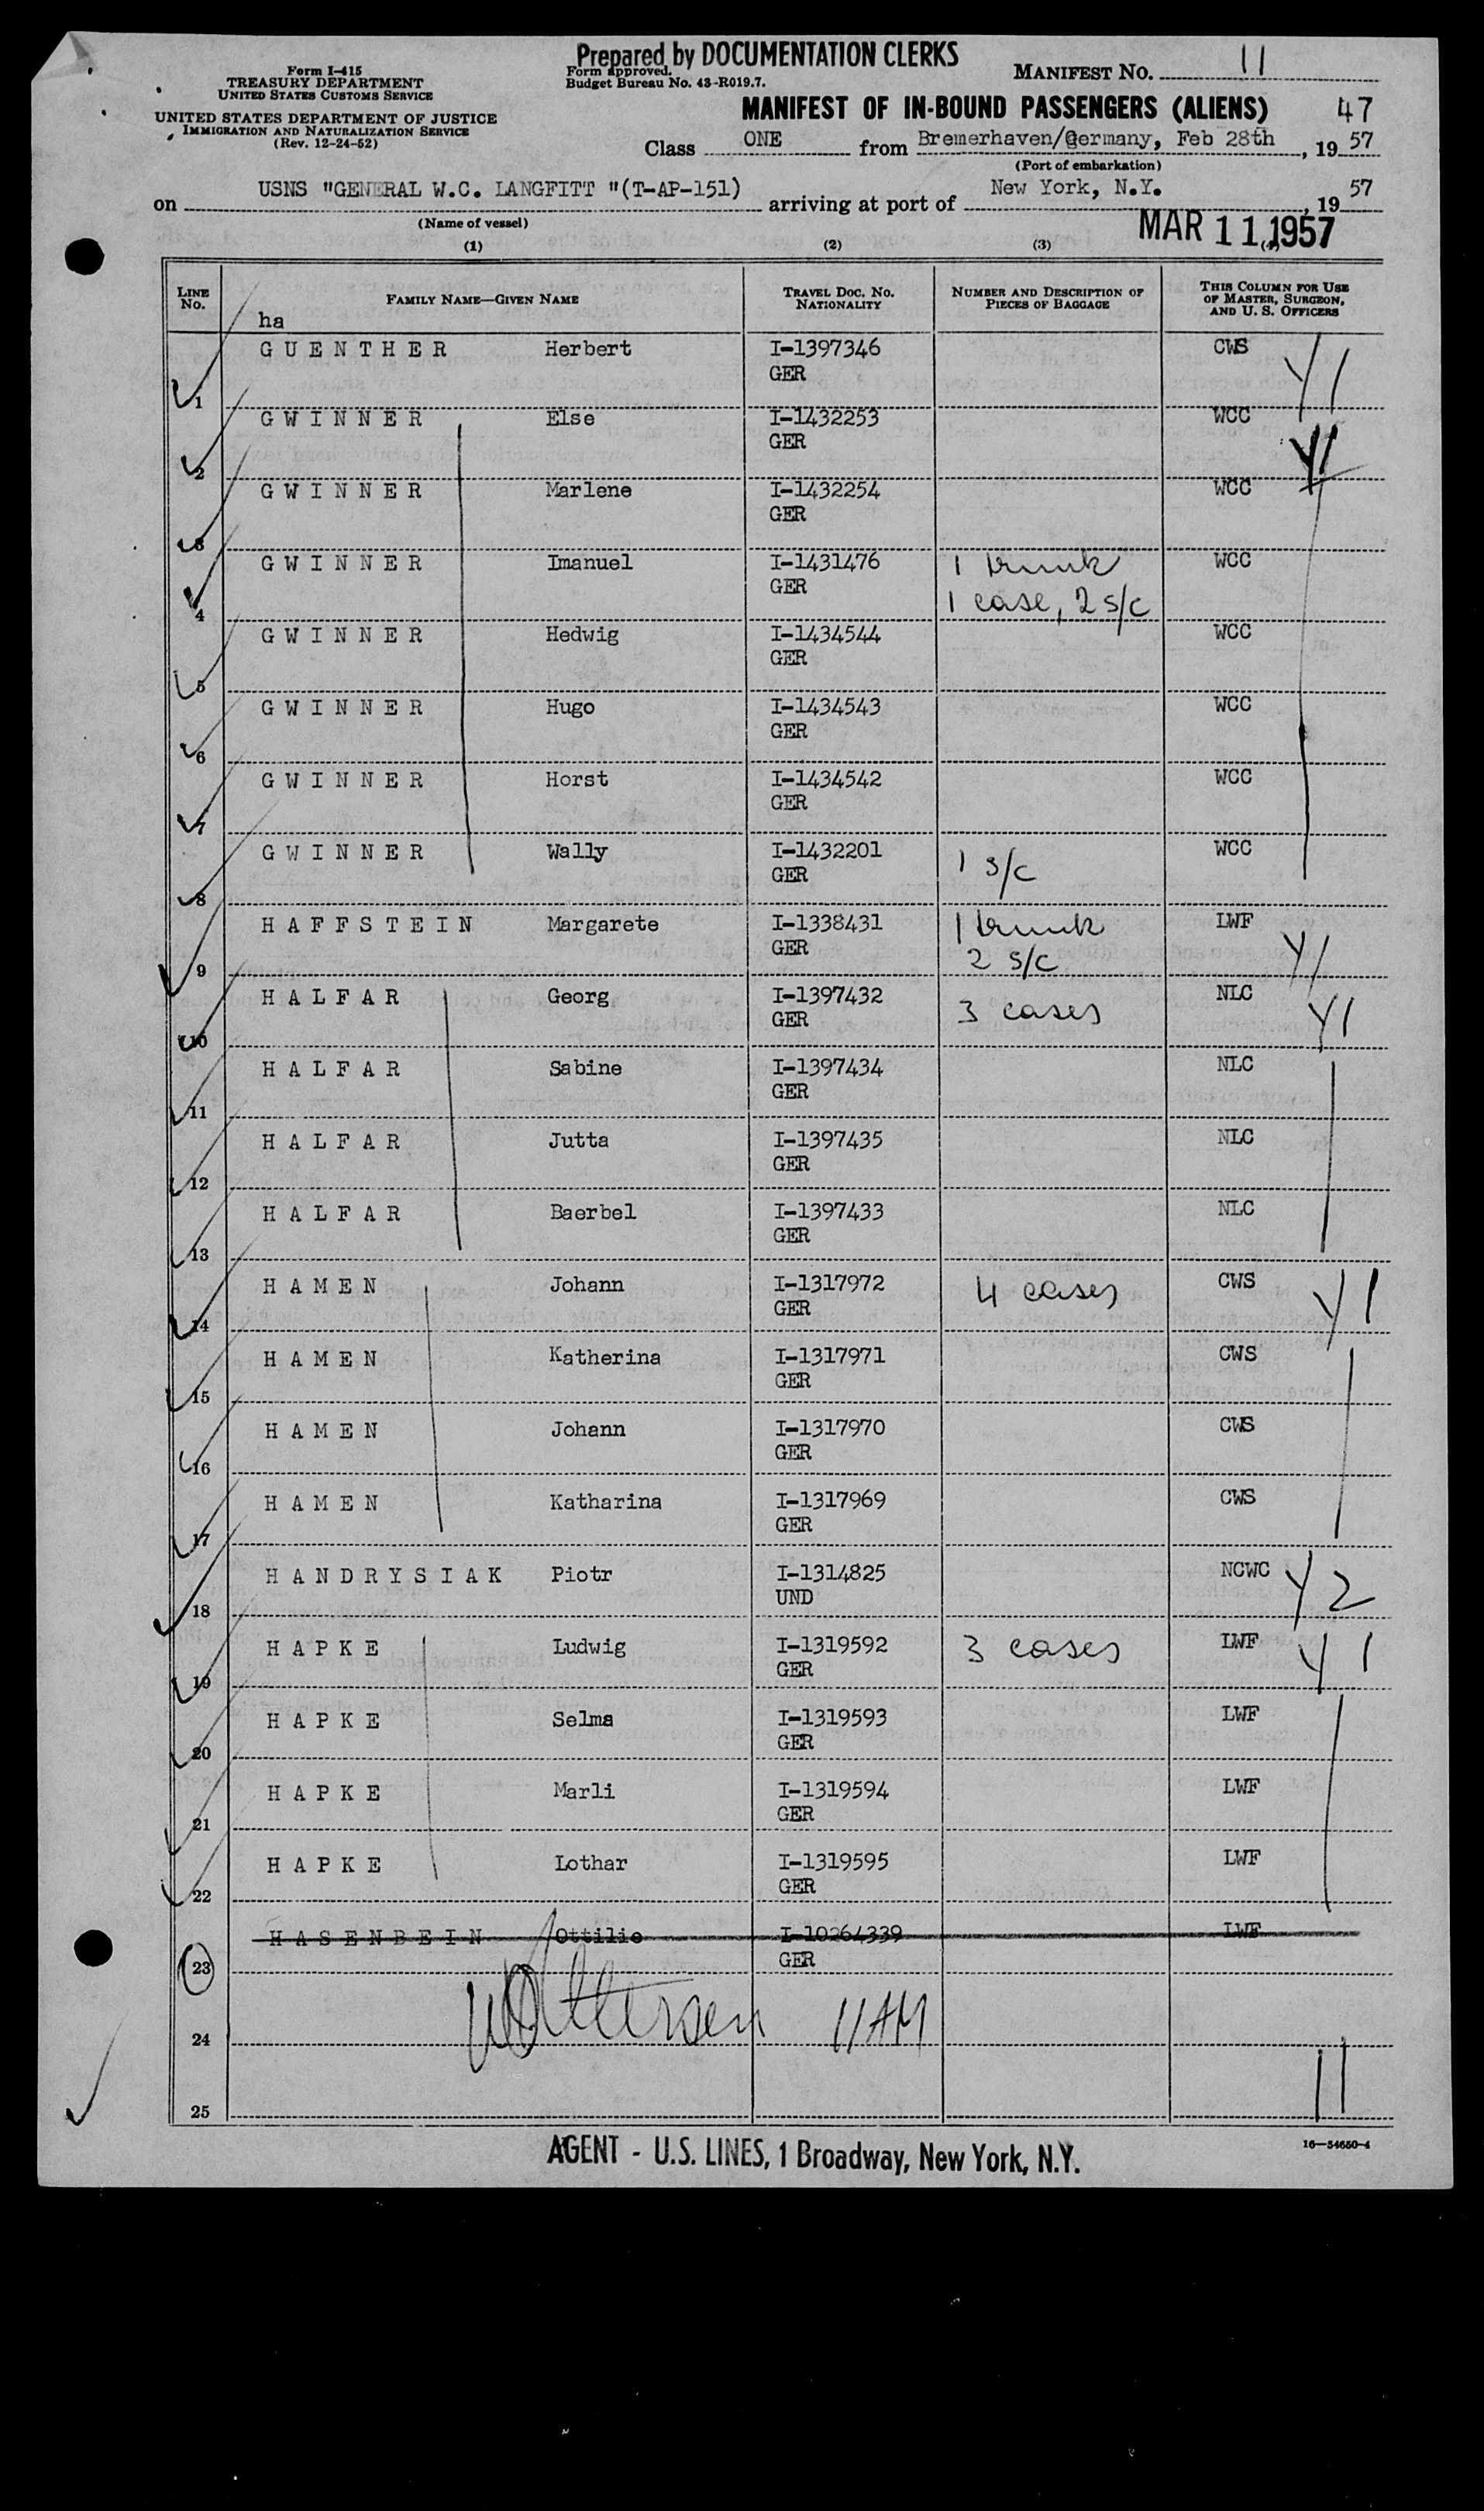 Prepared by DOCUMENTATION CLERKS
Form I-415
TREASURY DEPARTMENT
UNITED STATES CUSTOMS SERVICE
UNITED STATES DEPARTMENT OF JUSTICE
IMMIGRATION AND NATURALIZATION SERVICE
(Rev. 12-24-52)
Form approved.
Budget Bureau No. 43-R019.7.
MANIFEST NO. 11
MANIFEST OF IN-BOUND PASSENGERS (ALIENS) 47
Class ONE from Bremerhaven/Germany, Feb 28th, 19 57
(Port of embarkation)
on USNS "GENERAL W.C. LANGFITT "(T-AP-151) arriving at port of New York, N.Y., 19 57
(Name of vessel)
MAR 11 1957
(1) (2) (3) (4)
LINE No. FAMILY NAME—GIVEN NAME TRAVEL DOC. NO. NATIONALITY NUMBER AND DESCRIPTION OF PIECES OF BAGGAGE THIS COLUMN FOR USE OF MASTER, SURGEON, AND U. S. OFFICERS
ha
1 GUENTHER Herbert I-1397346 GER CWS Y1
2 GWINNER Else I-1432253 GER WCC Y1
3 GWINNER Marlene I-1432254 GER WCC
4 GWINNER Imanuel I-1431476 GER 1 trunk 1 case, 2 s/c WCC
5 GWINNER Hedwig I-1434544 GER WCC
6 GWINNER Hugo I-1434543 GER WCC
7 GWINNER Horst I-1434542 GER WCC
8 GWINNER Wally I-1432201 GER 1 s/c WCC
9 HAFFSTEIN Margarete I-1338431 GER 1 trunk 2 s/c LWF Y1
10 HALFAR Georg I-1397432 GER 3 cases NLC Y1
11 HALFAR Sabine I-1397434 GER NLC
12 HALFAR Jutta I-1397435 GER NLC
13 HALFAR Baerbel I-1397433 GER NLC
14 HAMEN Johann I-1317972 GER 4 cases CWS Y1
15 HAMEN Katherina I-1317971 GER CWS
16 HAMEN Johann I-1317970 GER CWS
17 HAMEN Katharina I-1317969 GER CWS
18 HANDRYSIAK Piotr I-1314825 UND NCWC Y2
19 HAPKE Ludwig I-1319592 GER 3 cases LWF Y1
20 HAPKE Selma I-1319593 GER LWF
21 HAPKE Marli I-1319594 GER LWF
22 HAPKE Lothar I-1319595 GER LWF
23 HASENBEIN Ottilie I-10264339 GER LWF
24 11AM
25 11
AGENT - U.S. LINES, 1 Broadway, New York, N.Y.
16—54650-4